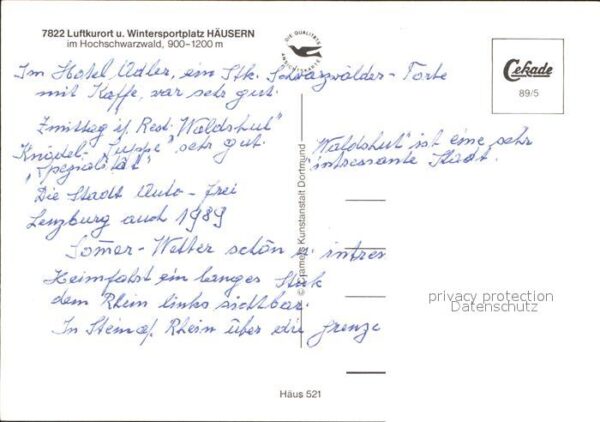 7822 Luftkurort u. Wintersportplatz HÄUSERN
im Hochschwarzwald, 900-1200 m
DIE QUALITÄTS ANSICHTSKARTE
Cekade
89/5
Im Hotel Adler, ein Stk. Schwarzwälder-Torte
mit Kaffe, war sehr gut.
Zmittag i/ Rest. "Waldshut"
Knödel-"Suppe" sehr gut.
"Spezialität"
Die Stadt Auto-frei
Lenzburg auch 1989
Somer-Wetter schön u. intres
Heimfahrt ein langes Stük
dem Rhein links sichtbar.
In Stein a/. Rhein über die Grenze
"Waldshut" ist eine sehr
intressante Stadt.
Kunstanstalt Dortmund
privacy protection
Datenschutz
Häus 521